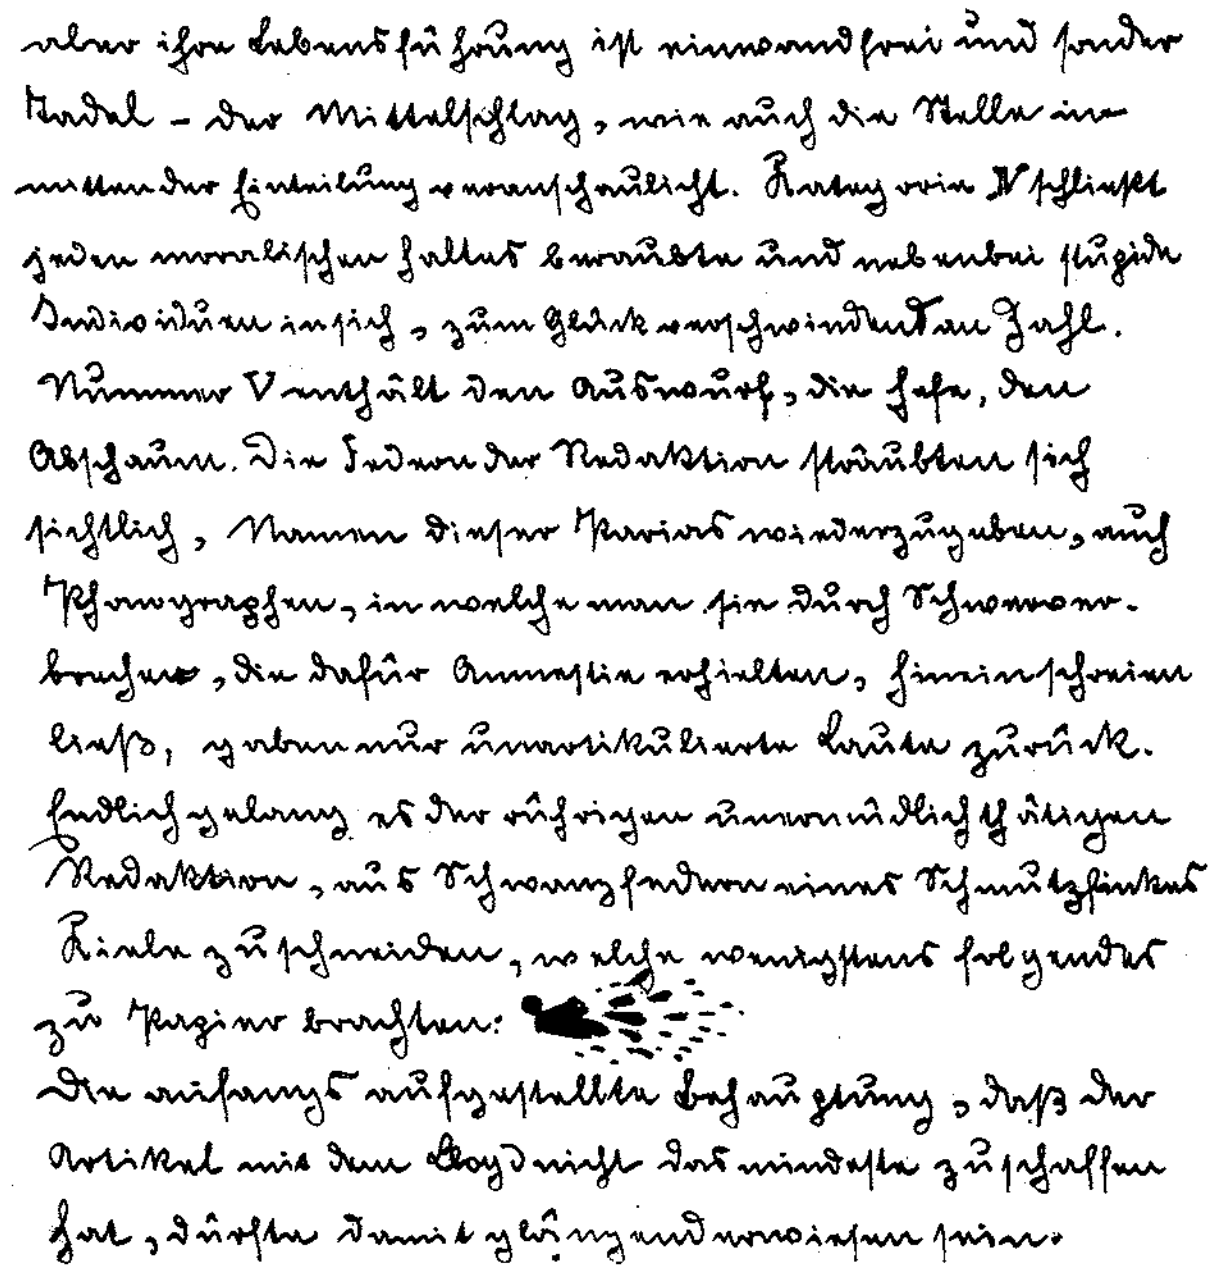 aber ihre Lebensführung ist einwandfrei und sonder
Tadel – der Mittelschlag, wie auch die Stelle in-
mitten der Einteilung veranschaulicht. Kategorie IV schließt
jeden moralischen Haltes beraubte und nebenbei stupide
Individuen in sich, zum Glück verschwindend an Zahl.
Nummer V enthält den Auswurf, die Hefe, den
Abschaum. Die Federn der Redaktion sträubten sich
sichtlich, Namen dieser Parias wiederzugeben, auch
Phonographen, in welche man sie durch Schwerver-
brecher, die dafür Amnestie erhielten, hineinschreien
ließ, gaben nur unartikulierte Laute zurück.
Endlich gelang es der rührigen unermüdlich thätigen
Redaktion, aus Schwanzfedern eines Schmutzfinkes
Kiele zu schneiden, welche wenigstens folgendes
zu Papier brachten:
Die anfangs aufgestellte Behauptung, daß der
Artikel mit dem Lloyd nicht das mindeste zu schaffen
hat, dürfte damit glänzend erwiesen sein.